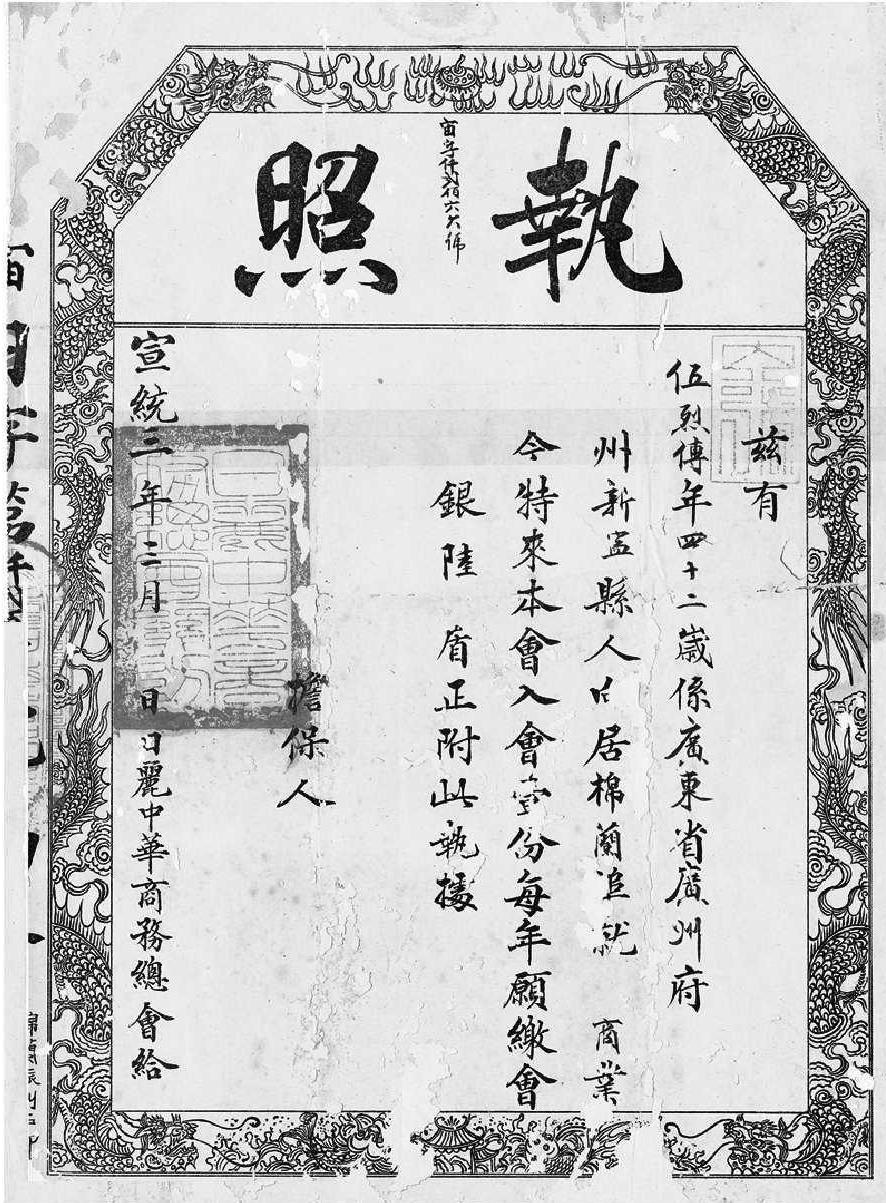 執照
茲有
伍烈傳年四十二歲係廣東省廣州府
州新寍縣人 居棉蘭 就 商業
今特來本會入會壹份每年願繳會
銀陸 盾正附此執據
擔保人
宣統 年三月 日日麗中華商務總會給